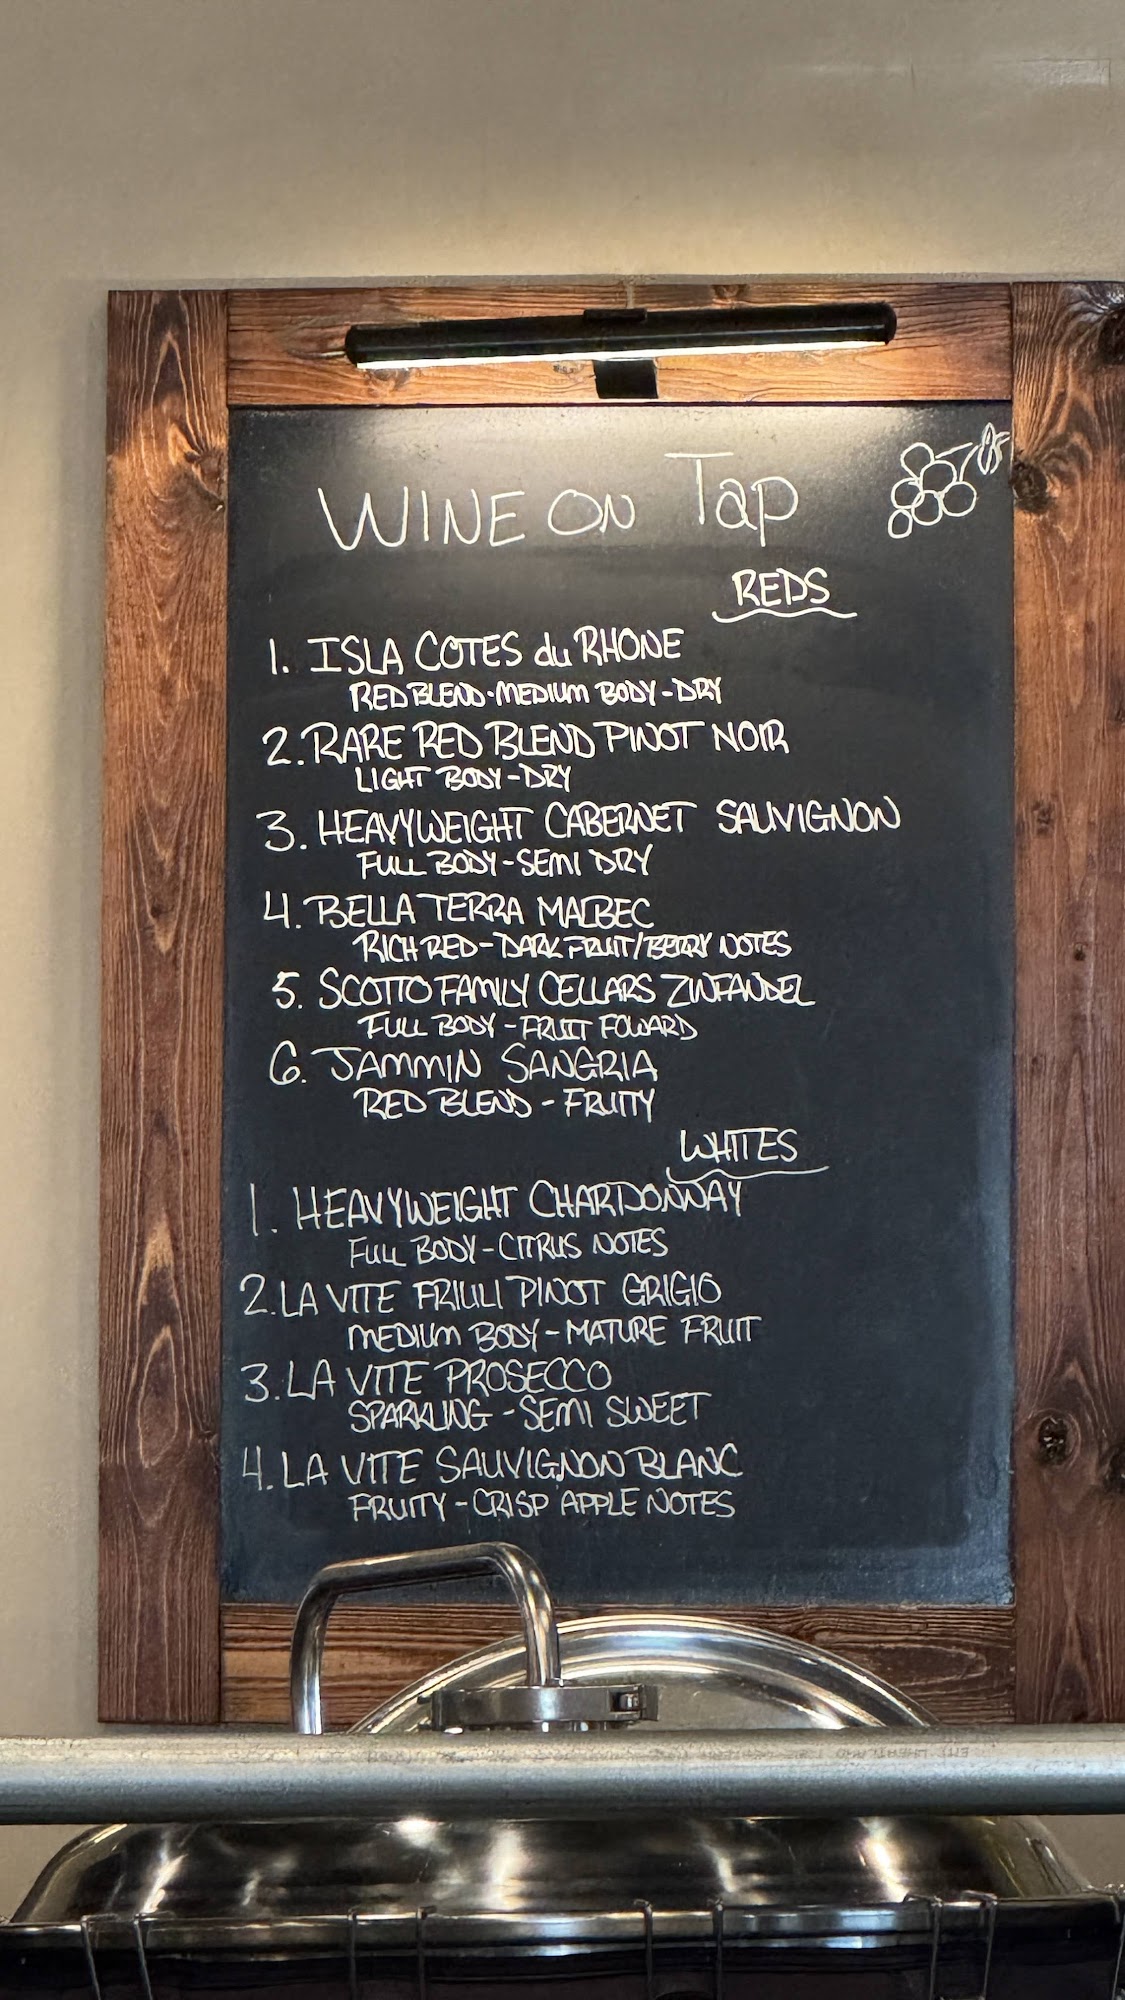 WINE ON Tap
REDS
1. ISLA COTES du RHONE
RED BLEND-MEDIUM BODY-DRY
2. RARE RED BLEND PINOT NOIR
LIGHT BODY-DRY
3. HEAVYWEIGHT CABERNET SAUVIGNON
FULL BODY-SEMI DRY
4. BELLA TERRA MALBEC
RICH RED-DARK FRUIT/BERRY NOTES
5. SCOTTO FAMILY CELLARS ZINFANDEL
FULL BODY-FRUIT FOWARD
6. JAMMIN SANGRIA
RED BLEND-FRUITY
WHITES
1. HEAVYWEIGHT CHARDONNAY
FULL BODY-CITRUS NOTES
2. LA VITE FRIULI PINOT GRIGIO
MEDIUM BODY-MATURE FRUIT
3. LA VITE PROSECCO
SPARKLING-SEMI SWEET
4. LA VITE SAUVIGNON BLANC
FRUITY-CRISP APPLE NOTES